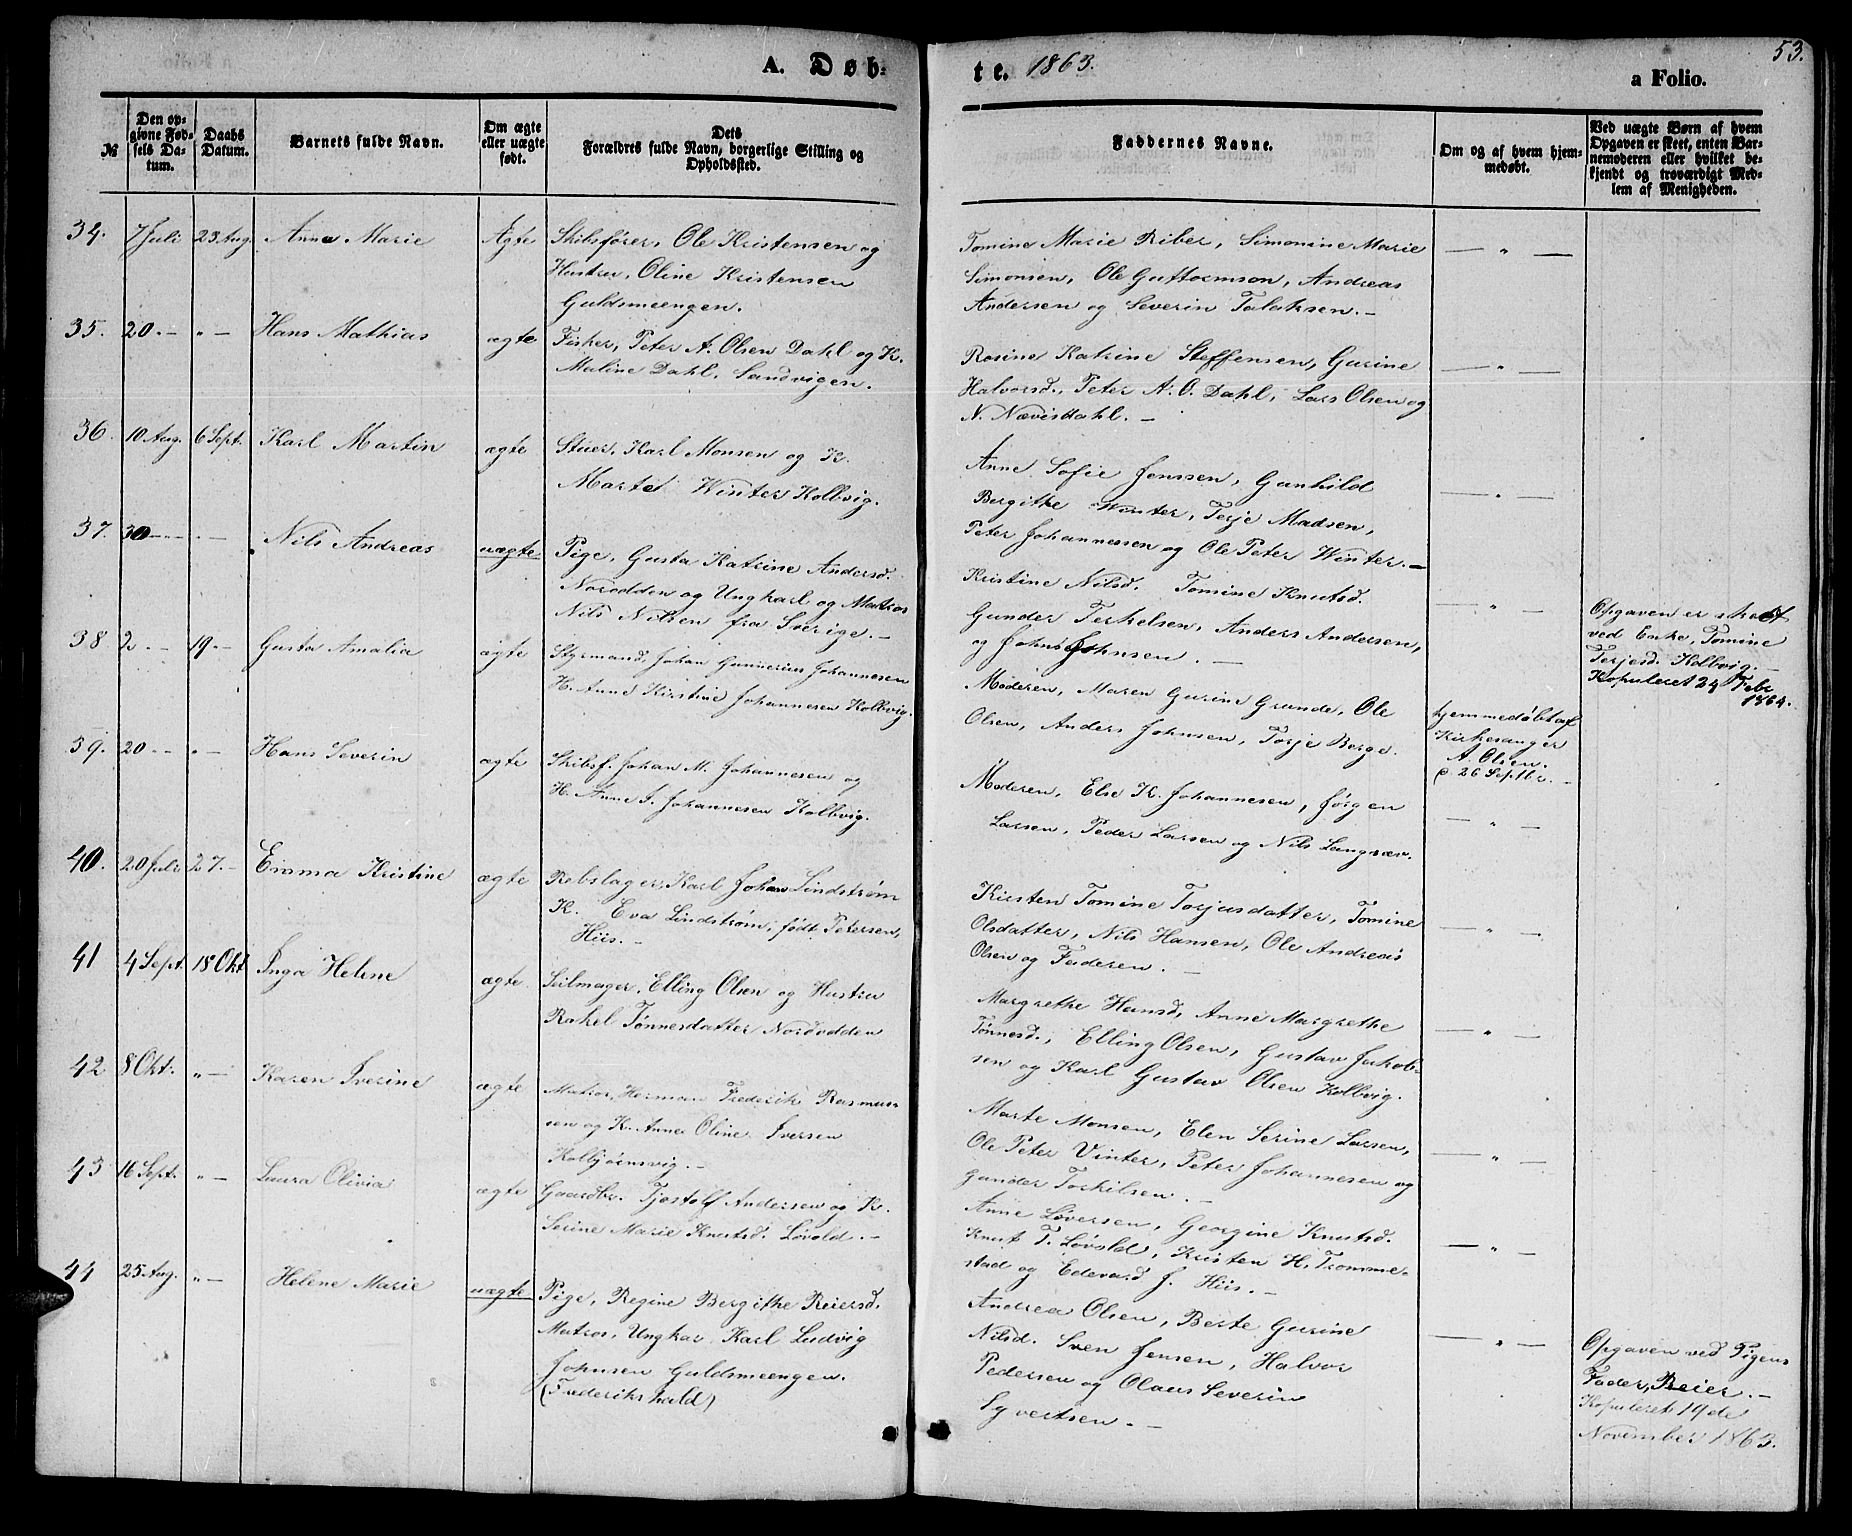 53.
A. Døb-
te. 1863.
a Folio.
№
Den op-
givne Fød-
sels Da-
tum.
Daabs
Datum.
Barnets fulde Navn.
Om ægte
eller uægte
født.
Dets
Forældres fulde Navn, borgerlige Stilling og
Opholdssted.
Faddernes Navne.
Om og af hvem hjem-
medøbt.
Ved uægte Børn af hvem
Opgaven er skeet, enten Bar-
nemoderen eller hvilket be-
kjendt og troværdigt Med-
lem af Menigheden.
34. 7 Juli 23 Aug. Anne Marie Ægte Skibsfører, Ole Kristensen og
Hustru, Oline Kristensen
Guldsmeengen.
Tomine Marie Riber, Simonine Marie
Simonsen, Ole Guttormson, Andreas
Andersen og Severin Talaksen. —
— " —
35. 20. — " — Hans Mathias ægte Fisker, Peter A. Olsen Dahl og K.
Maline Dahl. Sandvigen.
Rosine Katrine Steffensen, Gurine
Halvorsd., Peter A. O. Dahl, Lars Olsen og
N. Nævisdahl. —
— " —
36. 10 Aug. 6 Sept. Karl Martin ægte Stuer, Karl Monsen og K.
Marte Winter Kolbvig.
Anne Sofie Jenssen, Gunhild
Bergithe Winter, Terje Madsen,
Peter Johannessen og Ole Peter Winter. —
— " —
37. 30 — " — Nils Andreas uægte Pige, Gusta Katrine Andersd.
Norodden og Ungkarl og Matros
Nils Nilsen fra Sverige. —
Kristine Nilsd. Tomine Knutsd.
Gunder Terkelsen, Anders Andersen,
og Johns Johnsen. —
— " —
Opgaven er skeet
ved Enke, Tomine
Terjesd. Kolbvig. —
Kopuleret 24 Febr
1864.
38 2 — 19. — Gusta Amalia ægte Styrmand, Johan Gunnerius Johannesen
H. Anne Kirstine Johannesen Kolbvig.
Moderen, Maren Gurine Grunde, Ole
Olsen, Anders Johnsen, Torje Berge.
hjemmedøbt af
Kirkesanger
A. Olsen.
d 26 Septbr. —
39. 20 — " — Hans Severin ægte Skibsf. Johan M. Johannesen og
H. Anne J. Johannesen Kolbvig.
Moderen, Else K. Johannesen, Jørgen
Larsen, Peder Larsen og Nils Langsæv.
— " —
40. 20 Juli 27. — Emma Kristine ægte Rebslager, Karl Johan Lindstrøm
K. Eva Lindstrøm, født Petersen,
Hiis. —
Kirsten Tomine Torjusdatter, Tomine
Olsdatter, Nils Hansen, Ole Andreas
Olsen og Faderen. —
— " —
41 4 Sept. 18 Okt Inga Helene ægte Seilmager, Elling Olsen og Hustru
Rakel Tønnesdatter Nordodden
Margrethe Hansd, Anne Margrethe
Tønnesd., Elling Olsen, Gustav Jakob-
sen og Karl Gustav Olsen Kolbvig.
— " —
42 8 Okt. " — Karen Iverine ægte Matros, Herman Frederik Rasmus-
sen og K. Anne Oline Iversen
Kolbjørnsvig. —
Marte Monsen, Elen Serine Larsen,
Ole Peter Vinter, Peter Johannesen og
Gunder Torkilsen. —
— " —
43 16 Sept. " — Laura Olivia ægte Gaardbr. Tjøstolf Andersen og K.
Serine Marie Knutsd. Løvold. —
Anne Løversen, Georgine Knutsd.
Knut T. Løvold, Kristen H. Tromme-
stad og Edevard J. Hiis. —
— " —
44 25 Aug. " — Helene Marie uægte Pige, Regine Bergithe Reiersd.
Matros, Ungkar Karl Ludvig
Johnsen Guldsmeengen.
(Frederikshald)
Andrea Olsen, Berte Gurine
Nilsd. Sven Jensen, Halvor
Pedersen og Olaus Severin
Syvertsen. —
— " —
Opgaven ved Pigens
Fader, Reier. —
Kopuleret 19de
November 1863.